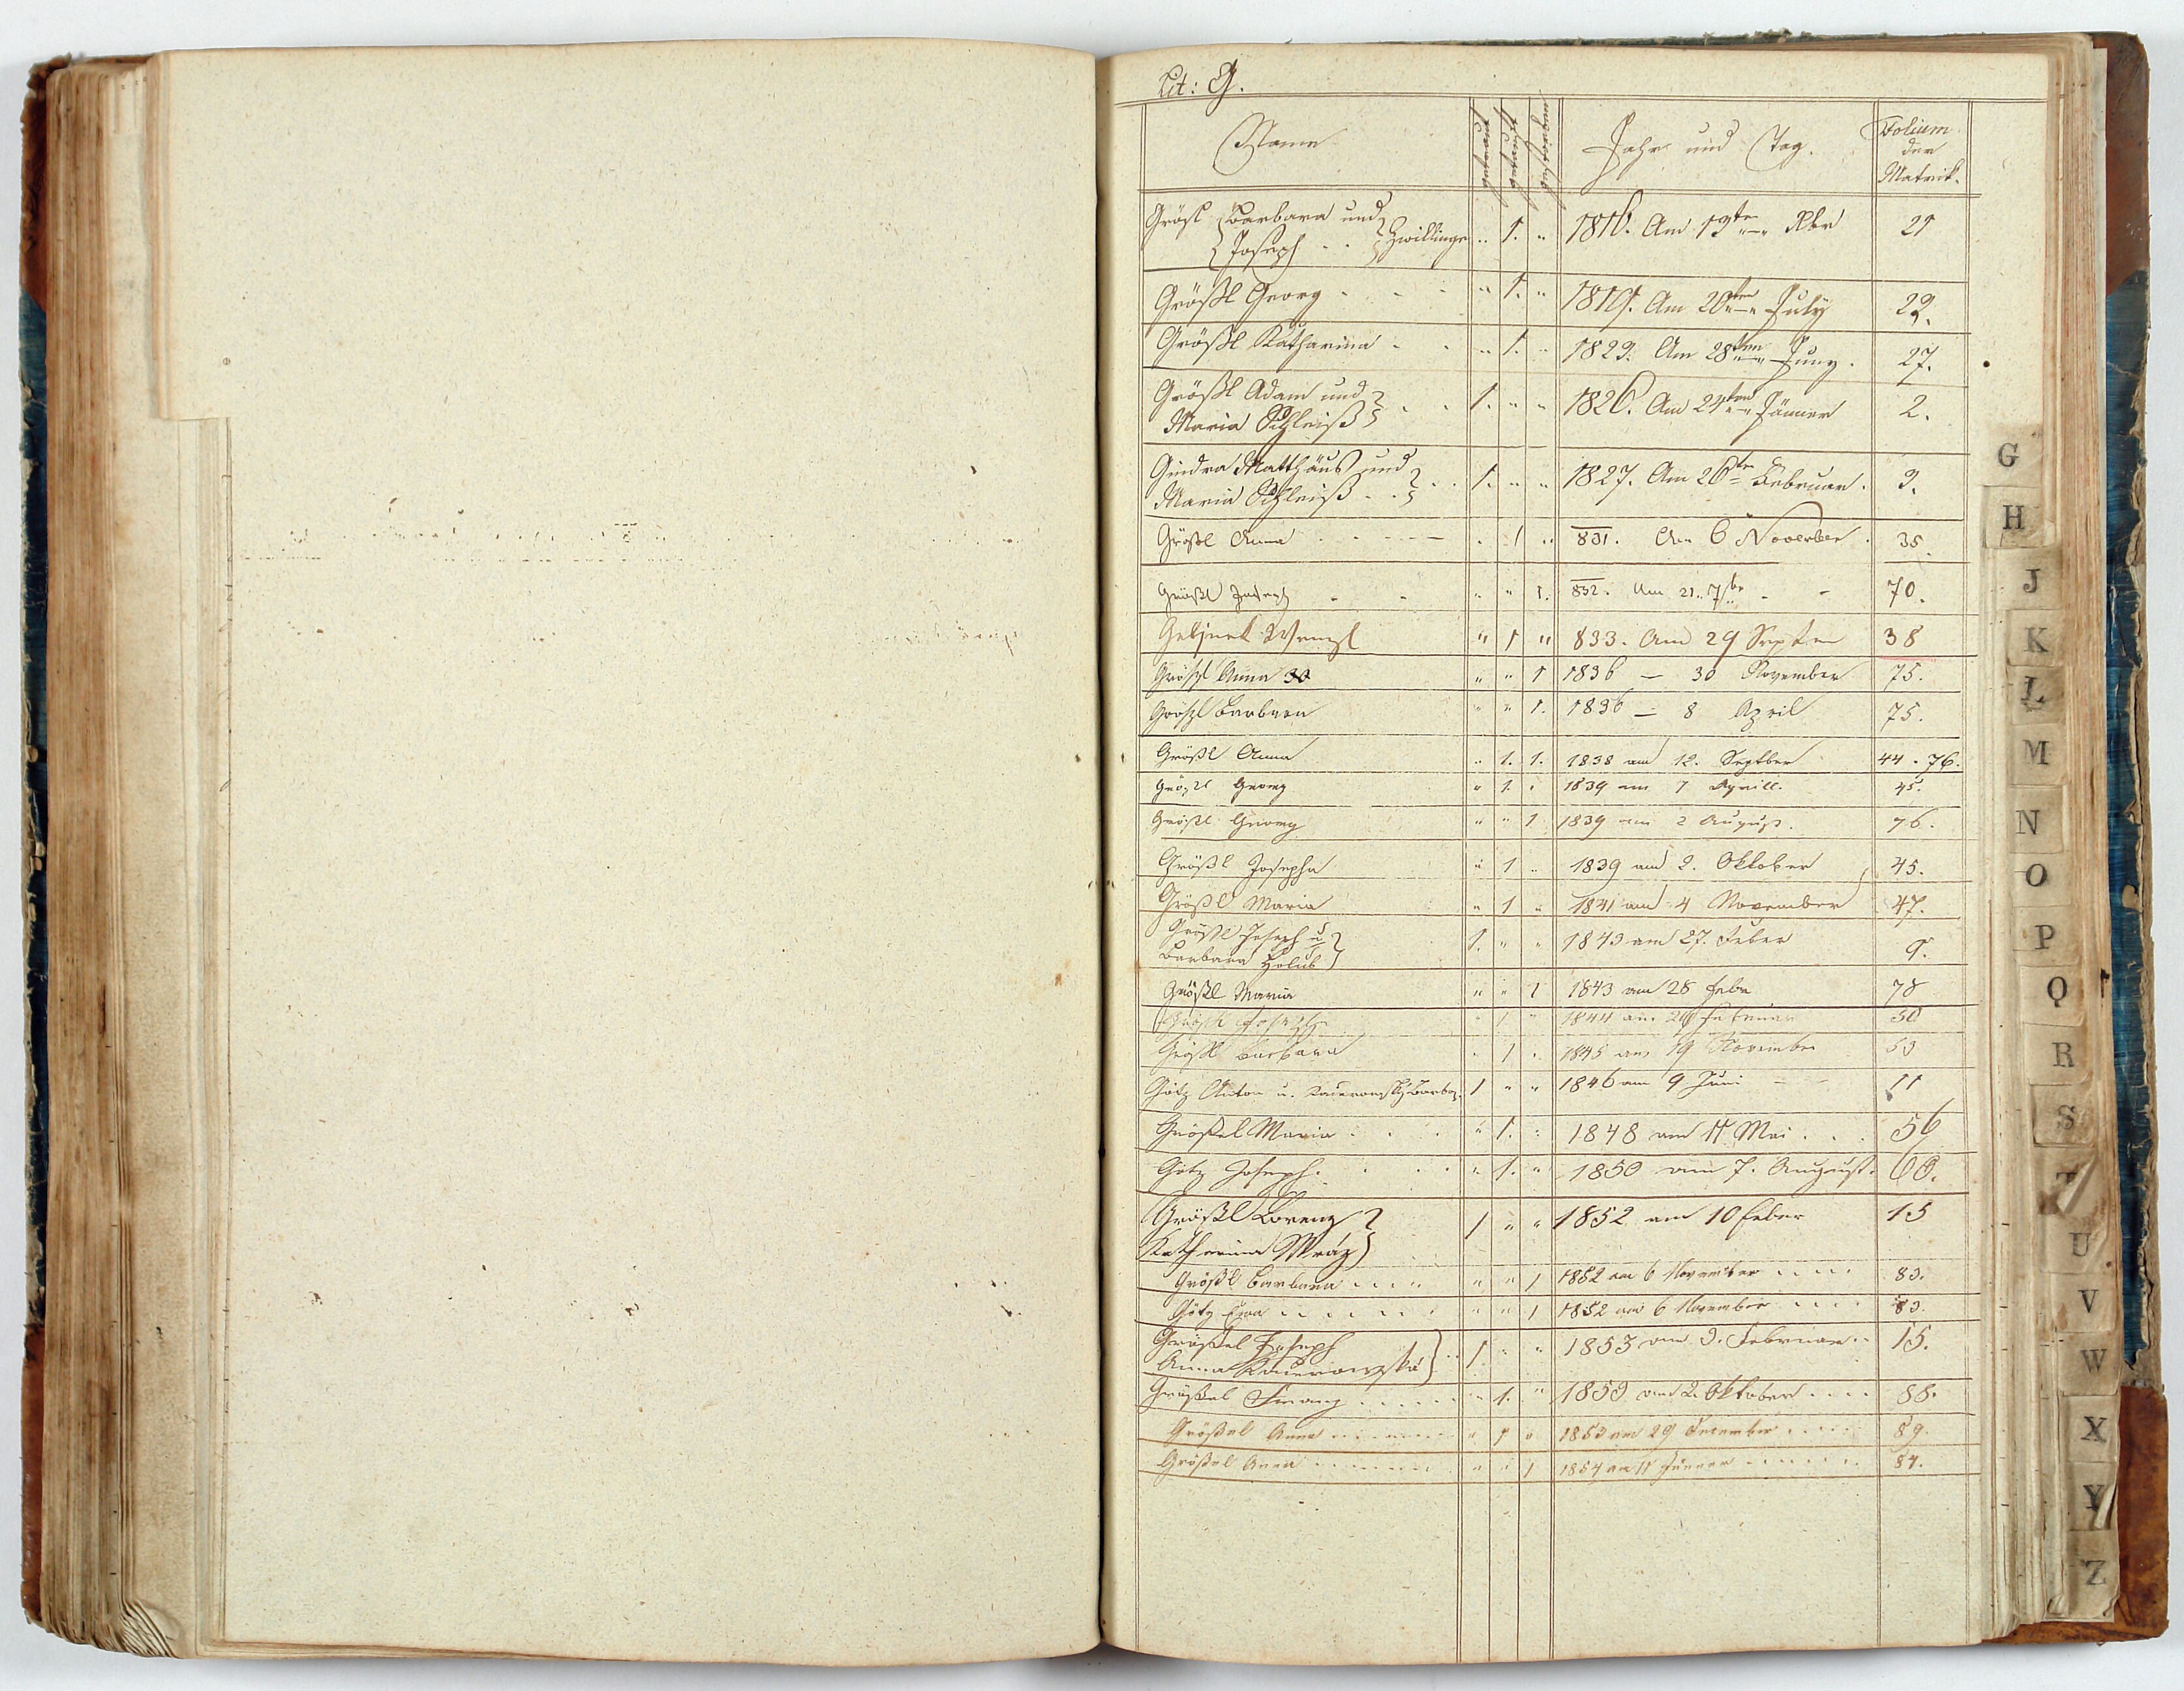 Lit: G.
Name getraut getauft gestorben Jahr und Tag. Folium
der
Matrik.
Grösl { Barbara und } Zwillinge " 1. " 1816. Am 13ten Xbr 21
{ Joseph . . }
Größl Georg - - - " 1. " 1819. Am 20ten July 22.
Größl Katharina - - " 1. " 1823. Am 28ten Juny. 27.
Größl Adam und } . . 1. " " 1826. Am 24ten Jänner 2.
Maria Schleiß }
Gindra Matthäus und } . . 1. " " 1827. Am 26te Februar. 3.
Maria Schleiß . . }
Größl Anna . - - - - . 1 " 831. Am 6 November. 35.
Größl Joseph - - " " 1. 832. Am 21. 7be - - 70.
Wenzl " 1 " 833. Am 29 Septem 38
Größl Anna " " 1 1836 — 30 November 75.
Größl Barbara " " 1. 1836 — 8 April 75.
Größl Anna " 1. 1. 1838 am 12. Septber 44. 76.
Größl Georg " 1. " 1839 am 7 Aprill. 45.
Größl Georg " " 1 1839 am 2 August. 76.
Größl Josepha " 1 " 1839 am 2. Oktober 45.
Größl Maria " 1 " 1841 am 4 November 47.
Größl Joseph u } 1. " " 1843 am 27. Feber 9.
Barbara Holub }
Größl Maria " " 1 1843 am 28 Febr 78
Größl Joseph " 1 " 1844 am Februar 50
Größl Barbara " 1 " 1845 am 19 November 53
Götz Anton u. Barbar. 1 " " 1846 am 9 Juni - - 11
Größel Maria . . . " 1. " 1848 am 11 Mai . . . 56
Götz Joseph . . . " 1. " 1850 am 7. August. 60.
Größl Lorenz } 1 " " 1852 am 10 Feber 15
Katharina Mráz }
Größl Barbara . . . . " " 1 1852 am 6 November . . . . 83.
Götz . . . . . " " 1 1852 am 6 November . . . . 83.
Größel Joseph } . . 1 " " 1853 am 3. Februar. . 15.
Anna Kauerowska }
Größel Franz . . . . . " 1. " 1853 am 2. Oktober . . . . 88.
Größel Anna . . . . . " 1 " 1853 am 29 December . . . . 89.
Größel Anna . . . . . " " 1 1854 am 11 Jänner . . . . . 84.
G
H
J
K
L
M
N
O
P
Q
R
S
T
U
V
W
X
Y
Z